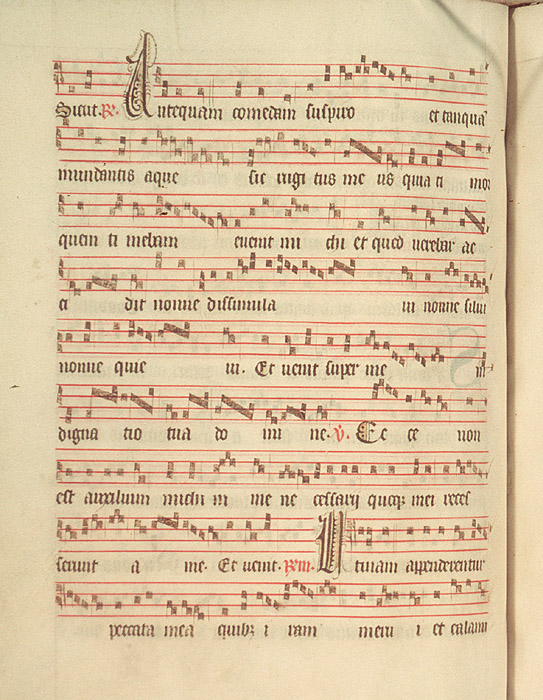 Sicut. R. Antequam comedam suspiro et tanqua
mundantis aque sic rugi tus me us quia ti mor
quem ti mebam evenit mi chi et quod verebar ac
ci dit nonne dissimula ui nonne silui
nonne quie ui. Et venit super me in
digna tio tua do mi ne. V. Ec ce non
est auxilium michi in me ne cessarij quoqz mei reces
serunt a me. Et venit. Rm. Utinam appenderentur
peccata mea quibz i ram merui i et calami